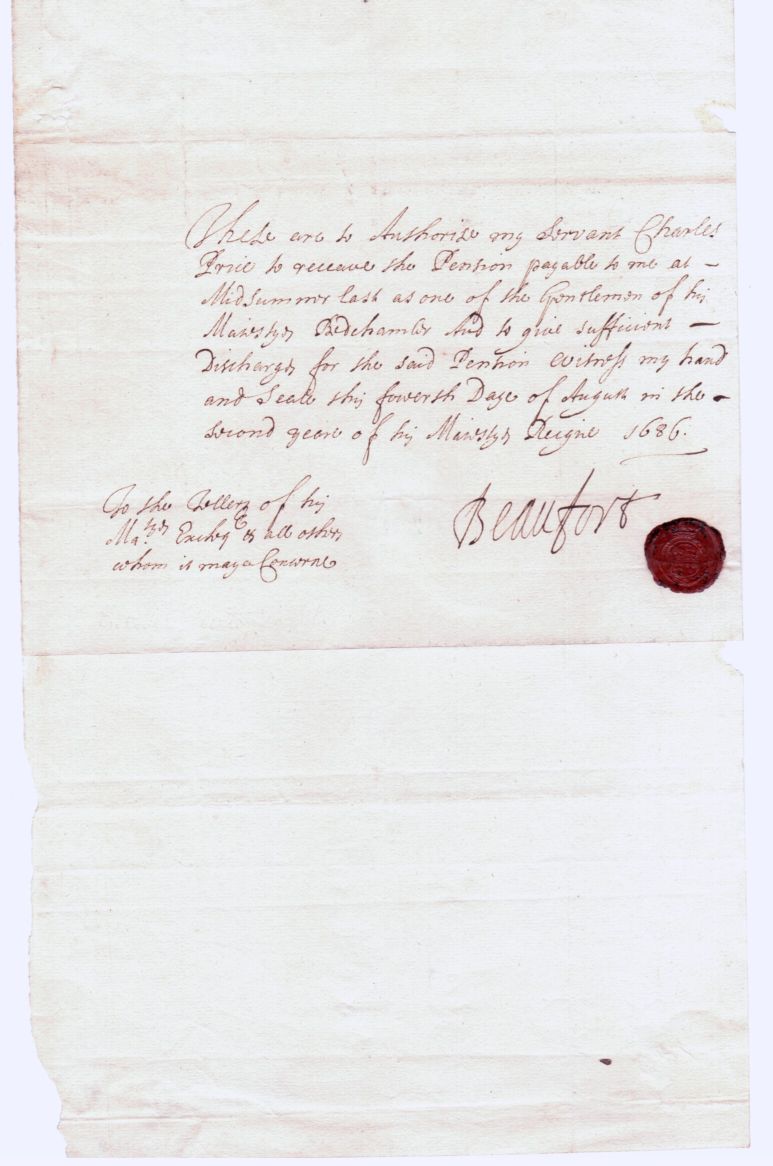 These are to Authorize my Servant Charles
Price to receave the Pension payable to me at –
Midsummer last as one of the Gentlemen of his
Maiestyes Bedchamber And to give sufficient –
Discharges for the said Pention Witness my hand
and Seale this fowerth Day of August in the –
second yeare of his Maiestyes Reigne 1686.
To the Tellers of his
Ma.tyes Excheqr & all others
whom it maye Concerne
Beaufort